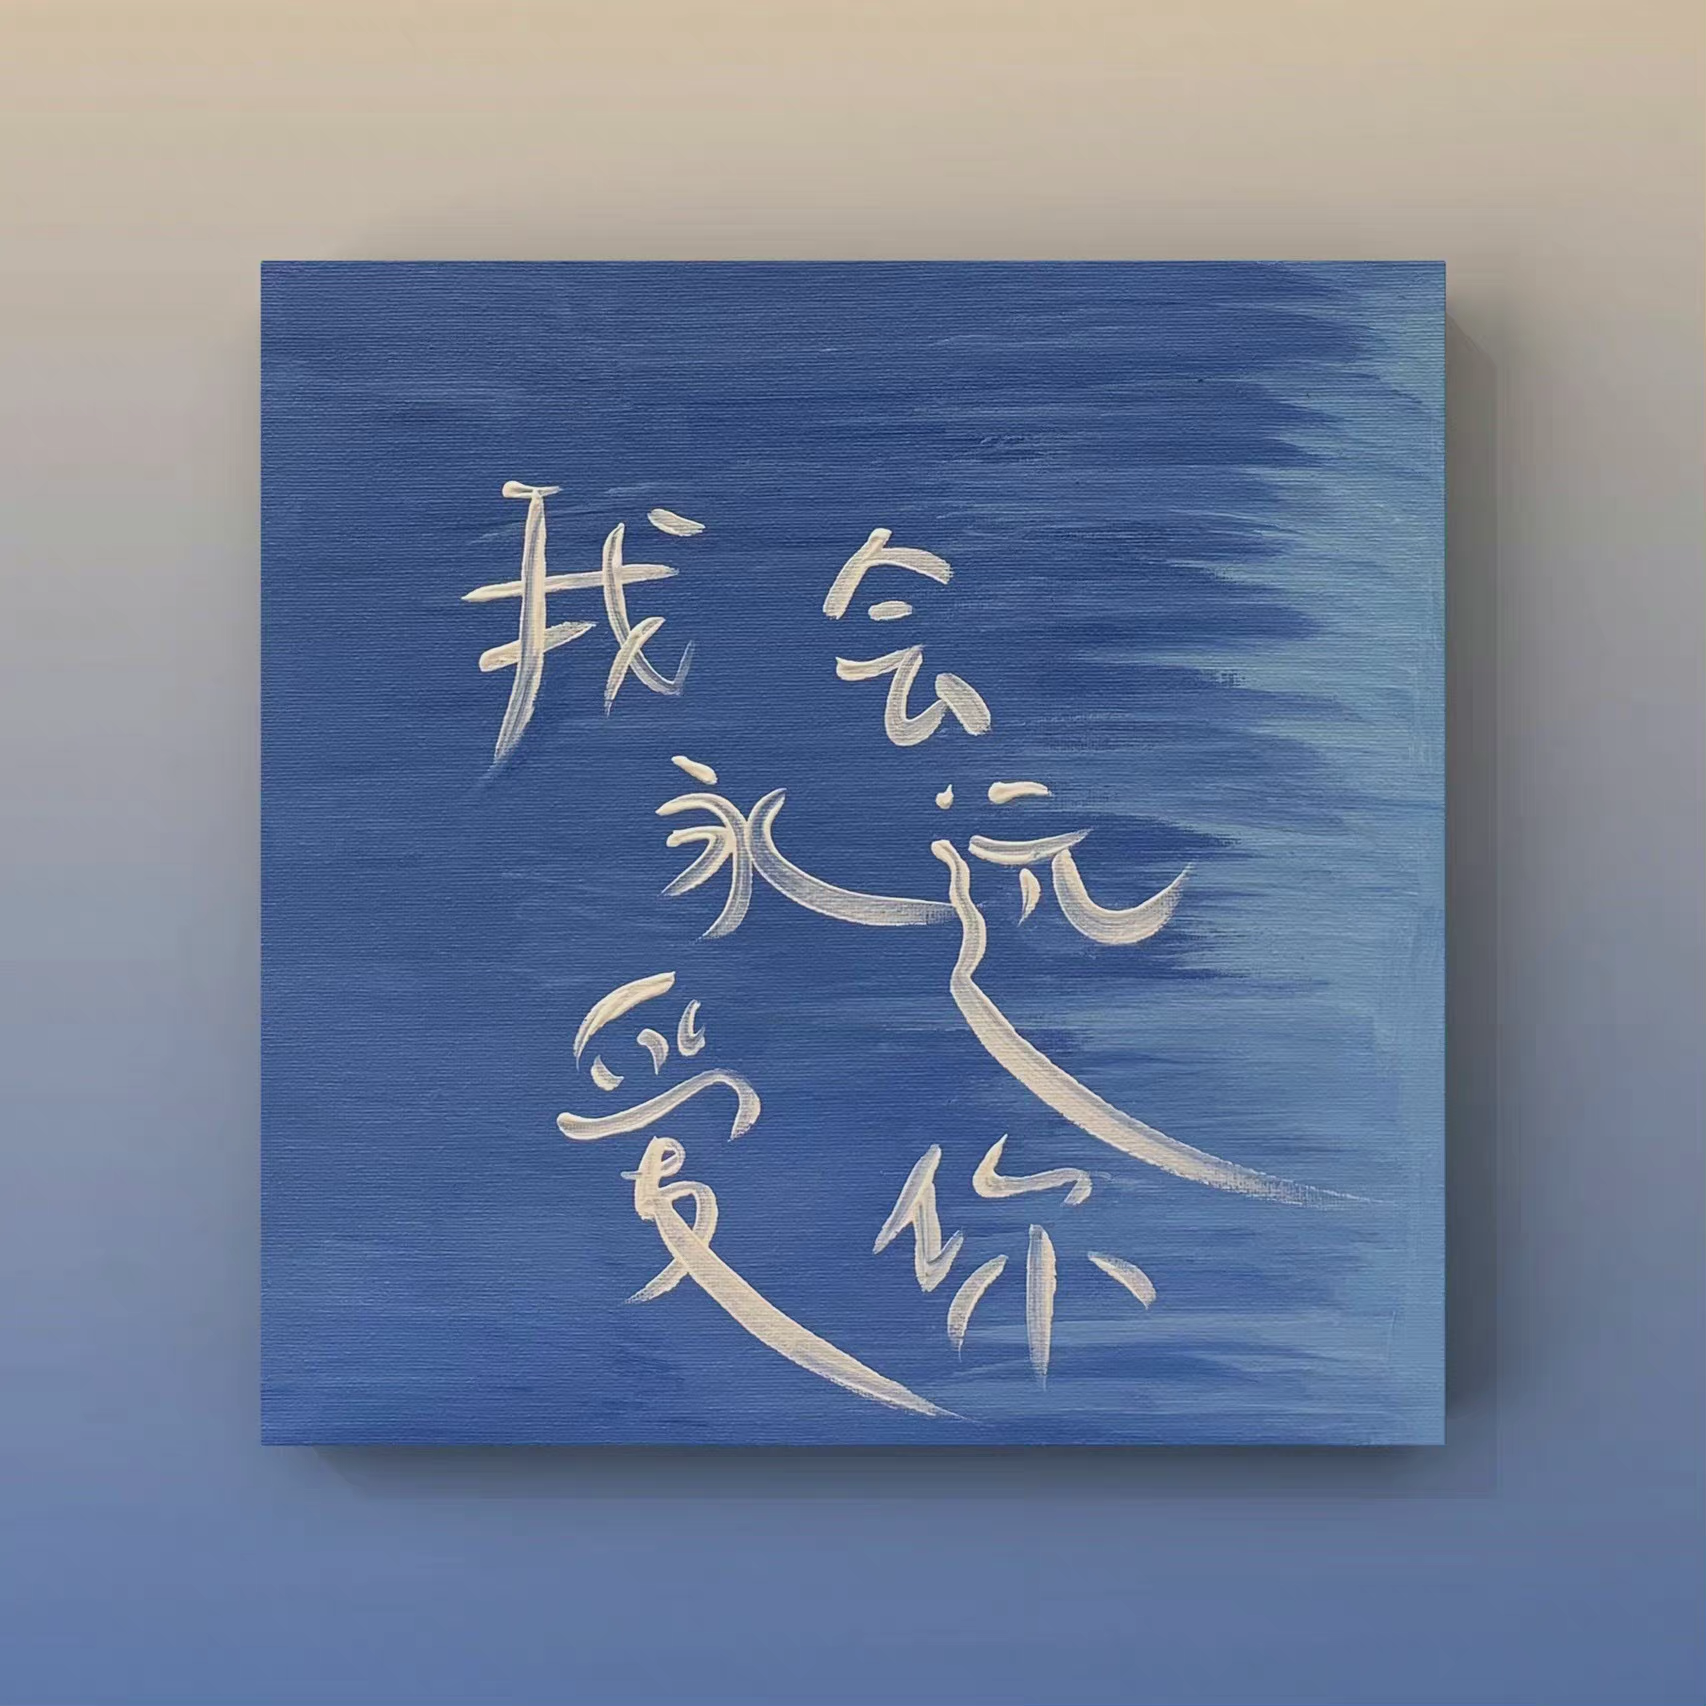 我会
永远
爱你